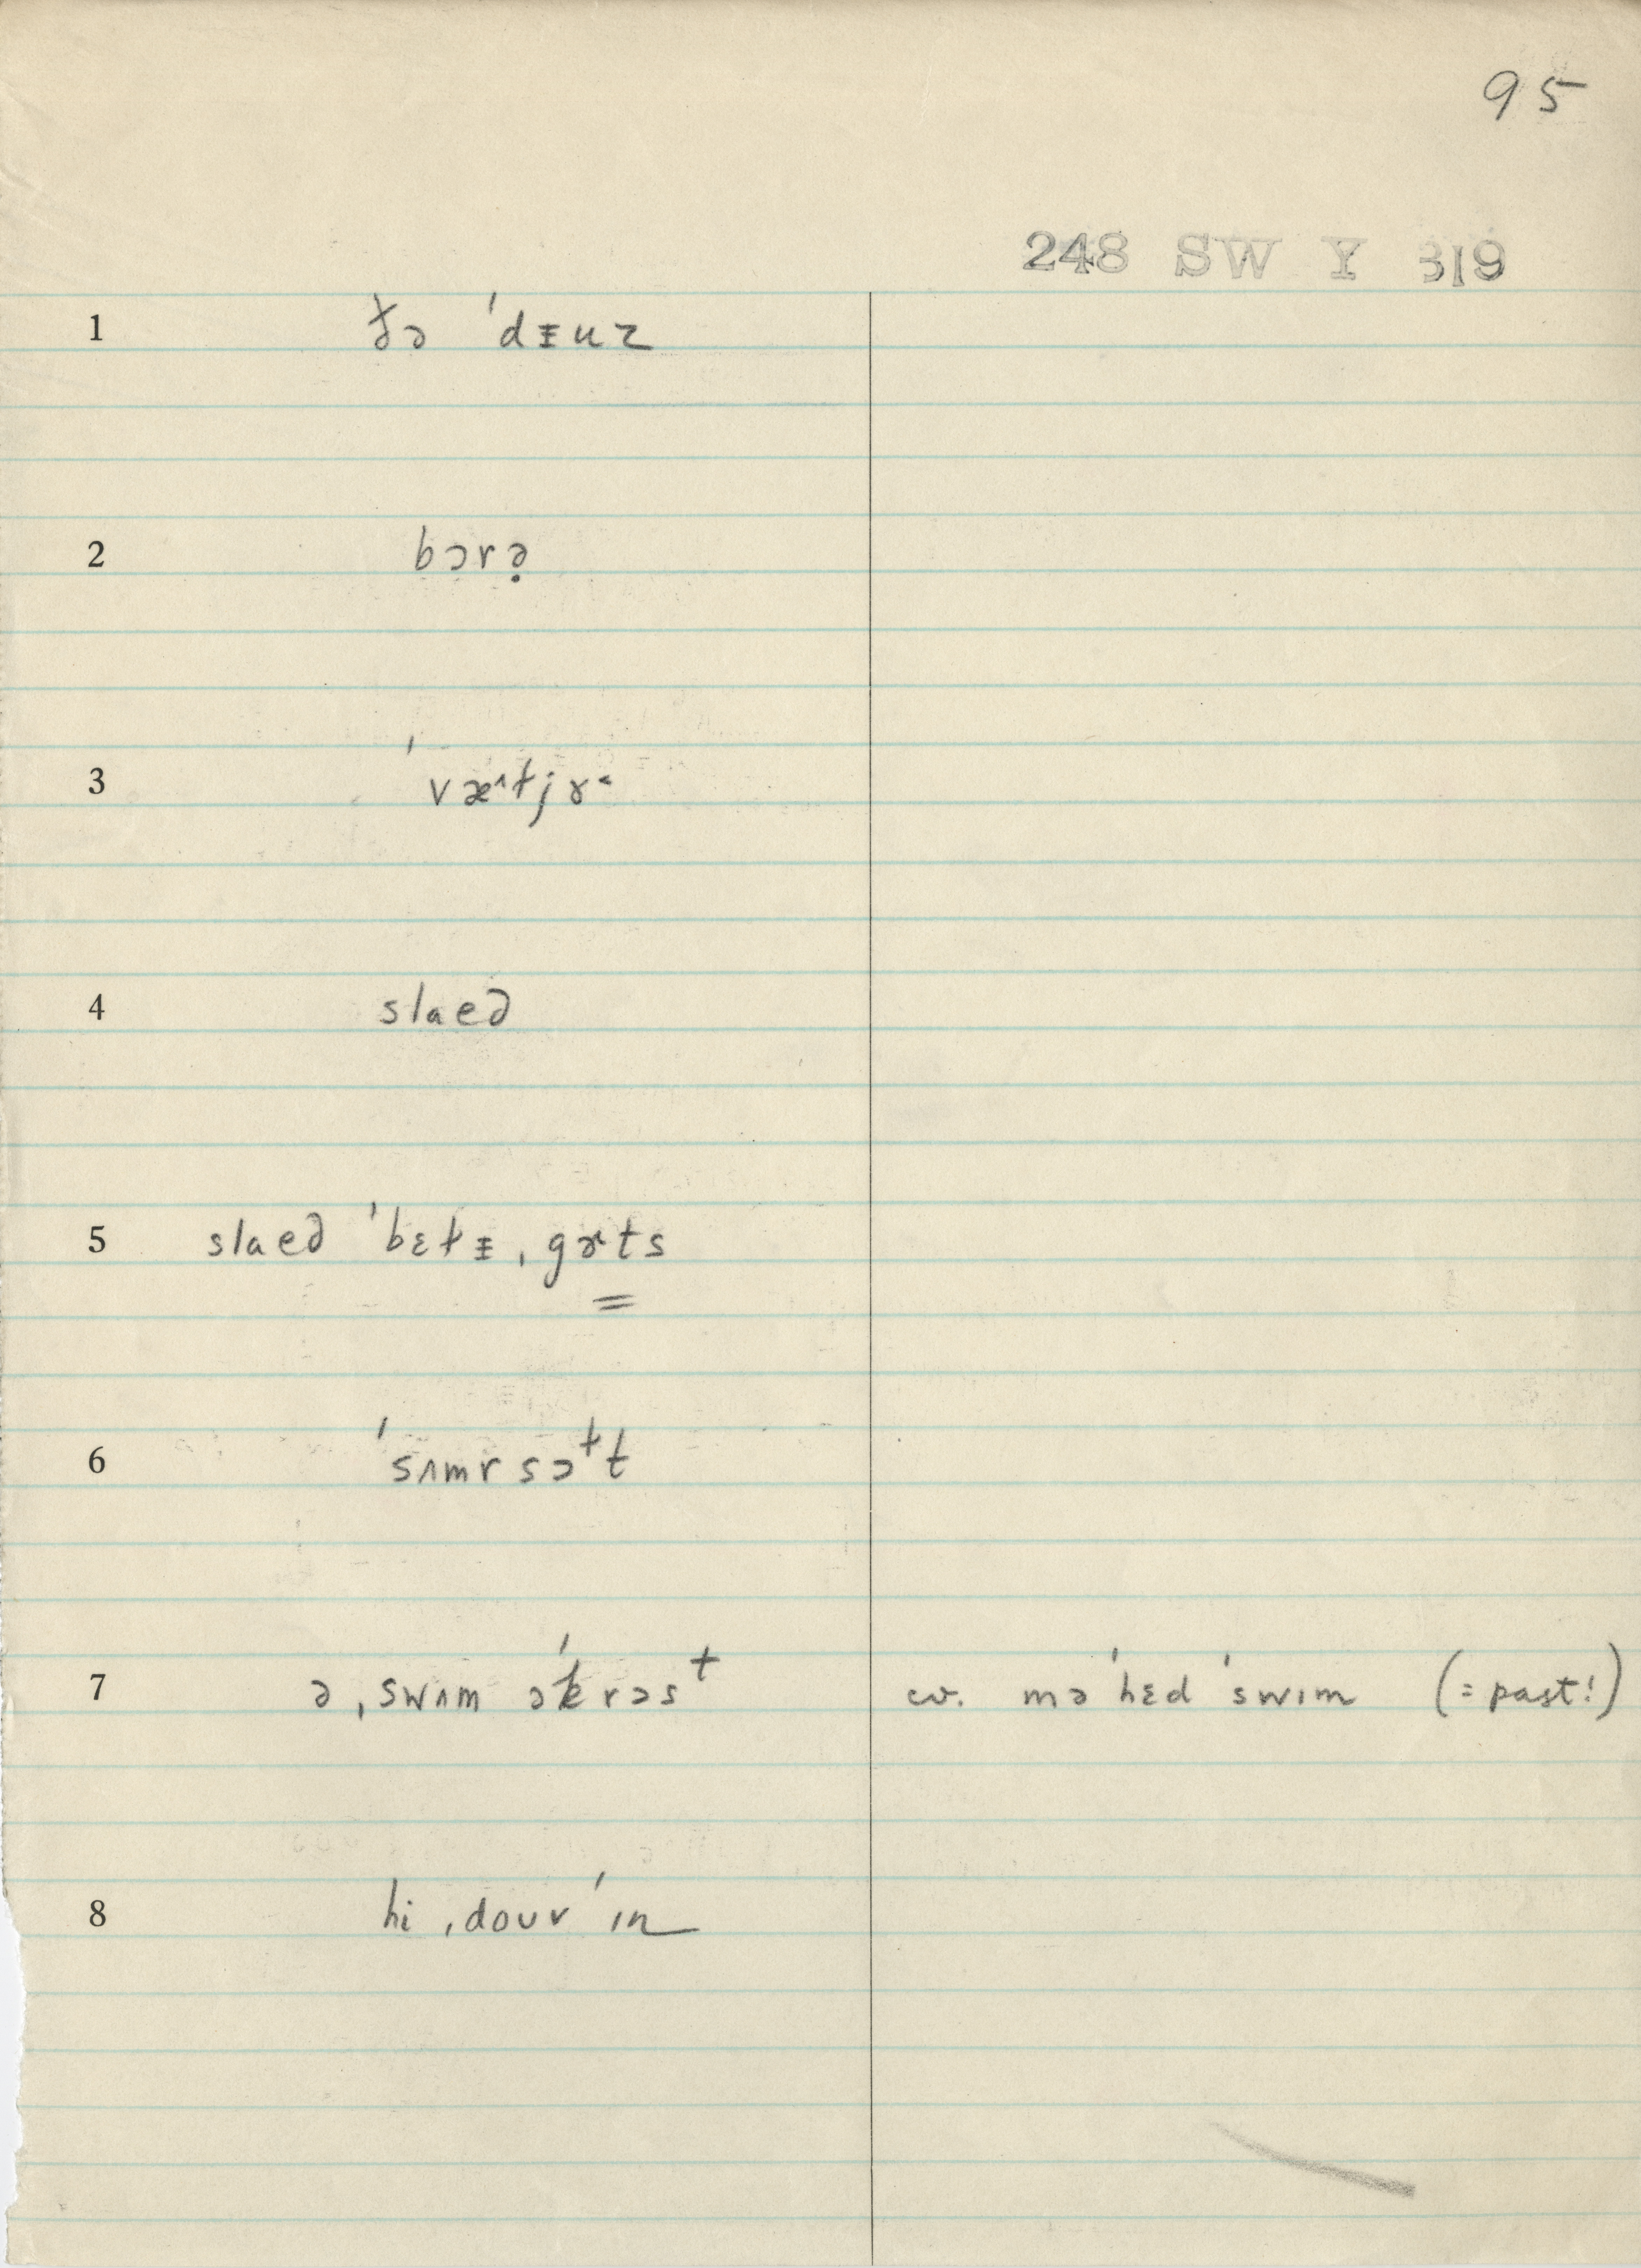 95
248 SW Y 319
1 ðə ˈdᵻuz
2 bɔrə̣
3 ˈvæ^tjɤ˂
4 slaeə
5 slaeə ˈbɛtᵻ ˌgɤts
6 ˈsʌmrsɔt
7 ə ˌswʌm əˈkrɔsᵗ cv. məˈhɛd ˈswɪm (= past!)
8 hi ˌdouv ˈɪn